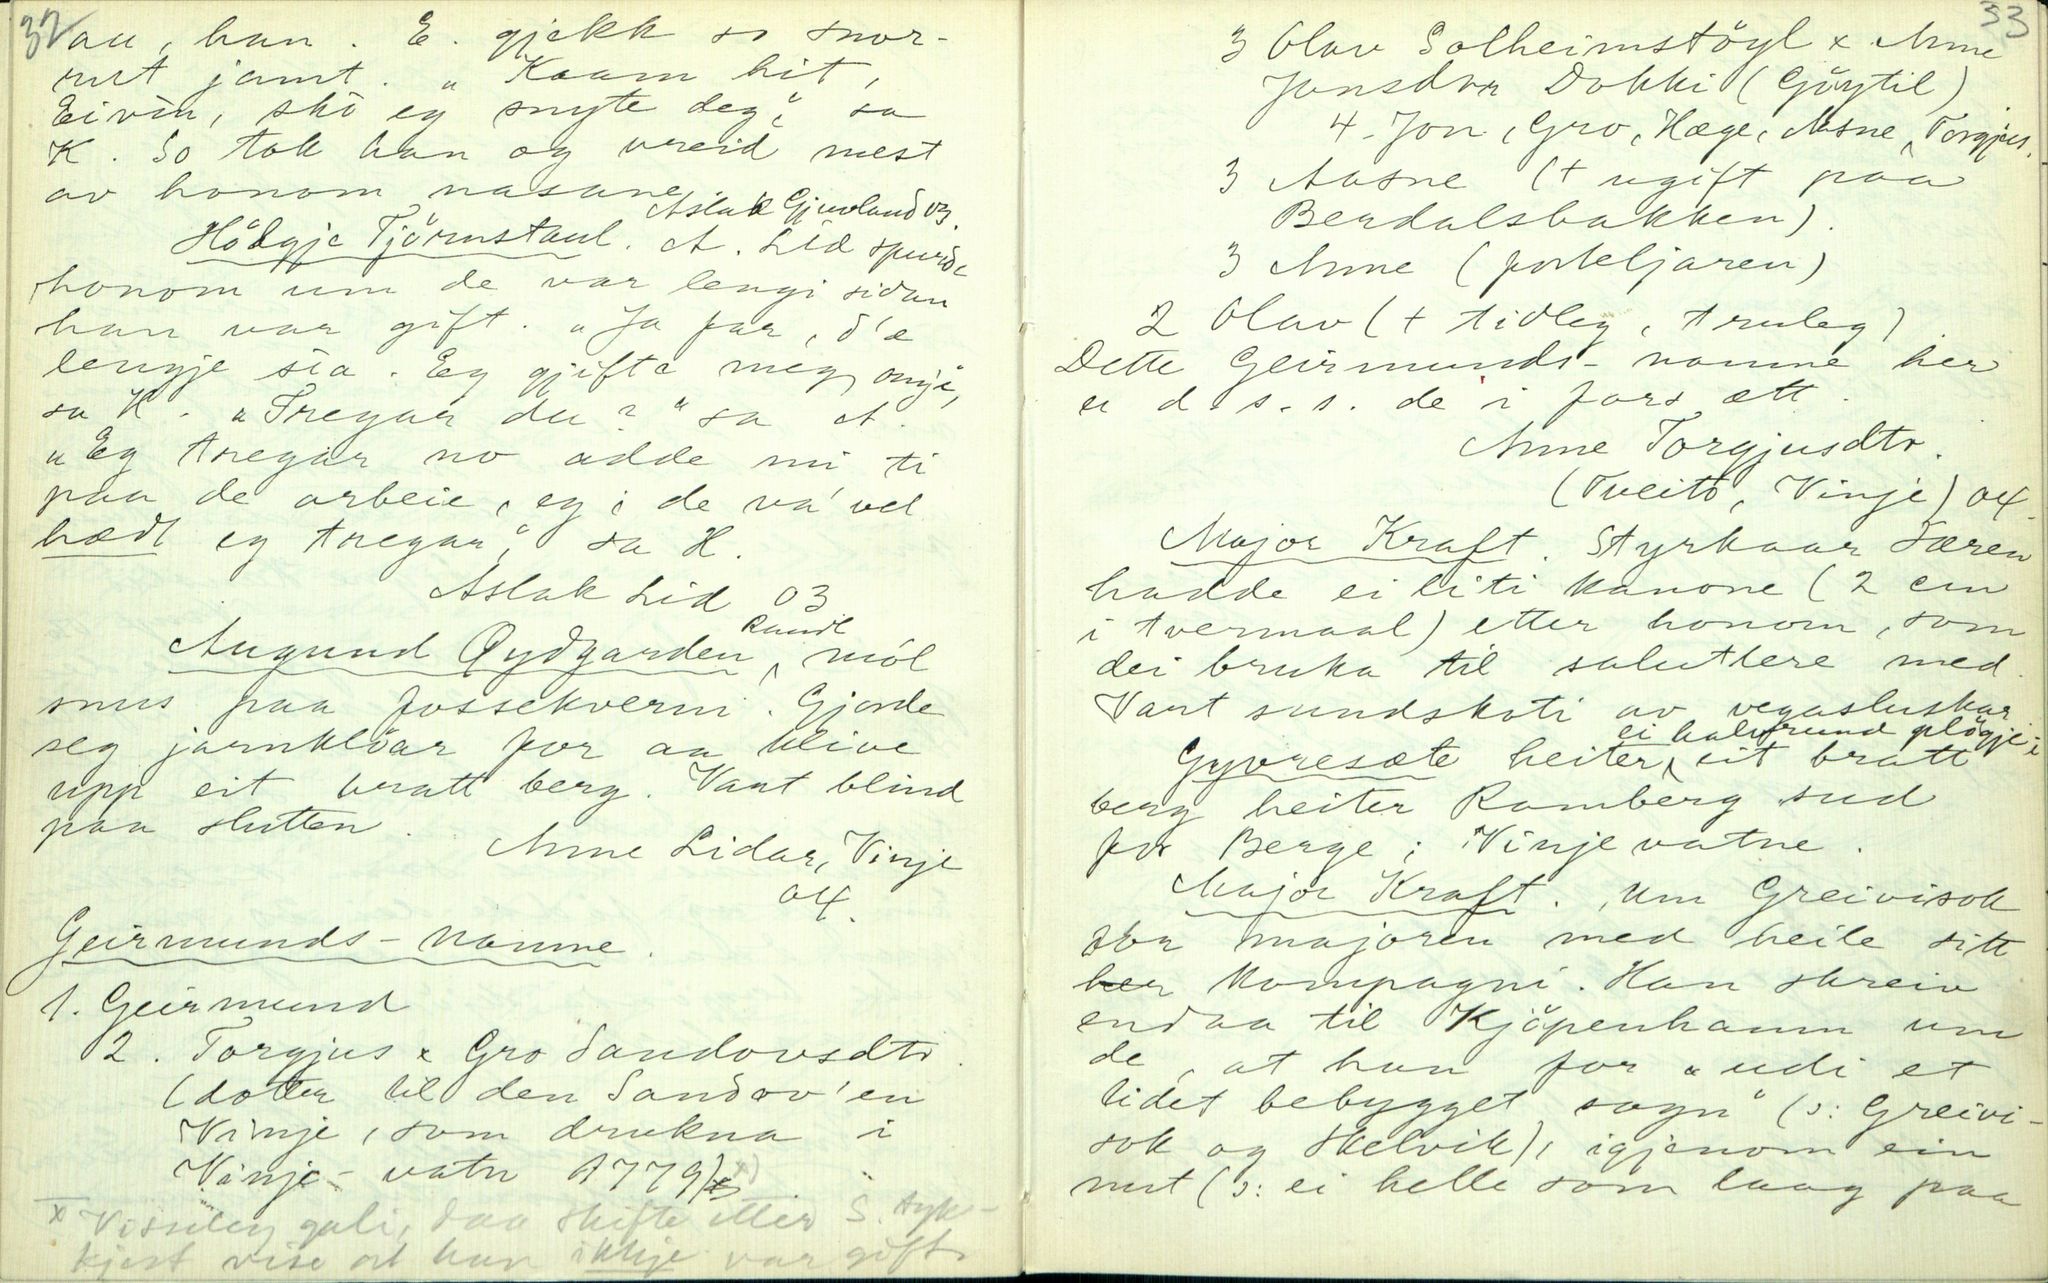 32
au, han. E. gjekk so snor-
rut jamt. "Kaam hit,
Eivìn, skò eg snyte deg", sa
K. So tok han og vreid mest
av honom nasane.
Aslak Gjuvland 03.
Hölgje Tjörnstaul. A. Lid spurde
honom um de var lengi sidan
han var gift. "Ja far, d'æ
lengje sia. Eg gjifte meg ongi,"
sa H. "Tregar du?" sa A.
"Eg tregar no adde mi ti
paa de arbeie, eg; de va' vel
hædt eg tregar", sa H.
Aslak Lid 03
Augund Öydgarden, Raudl mól
snus paa fossekverni. Gjorde
seg jarnklöar for aa klive
upp eit bratt berg. Vart blind
paa slutten.
Anne Lidar, Vinje
04.
Geirmunds-namne.
1. Geirmund
2. Torgjus x Gro Sandovsdtr.
(dotter til den Sandov'en
Vinje, som drukna i
Vinje-vatn 1779) x)
x Visseleg gali, daa skifte etter S. syk-
kjest vise at han ikkje var gift.
33
3 Olav Solheimstöyl x Anne
Jonsdtr Dokki (Göytil)
4. Jon, Gro, Hæge, Aasne, Torgjus.
3 Aasne (+ ugift paa
Berdalsbakken).
3 Anne (forteljaren)
2 Olav (+ tidleg, truleg)
Dette Geirmunds-namne her
er d. s. s. de i fars ætt.
Anne Torgjusdtr.
(Tveito, Vinje) 04.
Major Kraft. Styrkaar Særen
hadde ei liti kanone (2 cm
i tvermaal) etter honom, som
dei bruka til saluttere med.
Vart sundskoti av vegasluskar
Gyvresæte heiter ei halvrund glögje i eit bratt
berg heiter Ramberg sud
for Berge i Vinjevatne.
Major Kraft. Um Greivisok
for majoren med heile sitt
her kompagni. Han skreiv
endaa til Kjöpenhamn um
de, at han for "udi et
lidet bebygget sogn" (ɔ: Greivi-
sok og Skelvik), igjenom ein
nut (ɔ: ei helle som laag paa